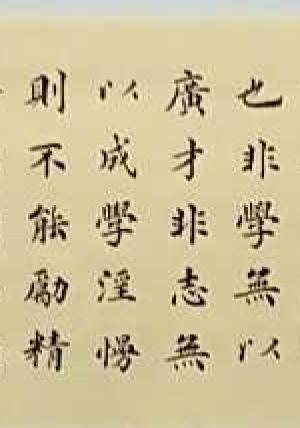 也非學無以
廣才非志無
以成學淫慢
則不能勵精